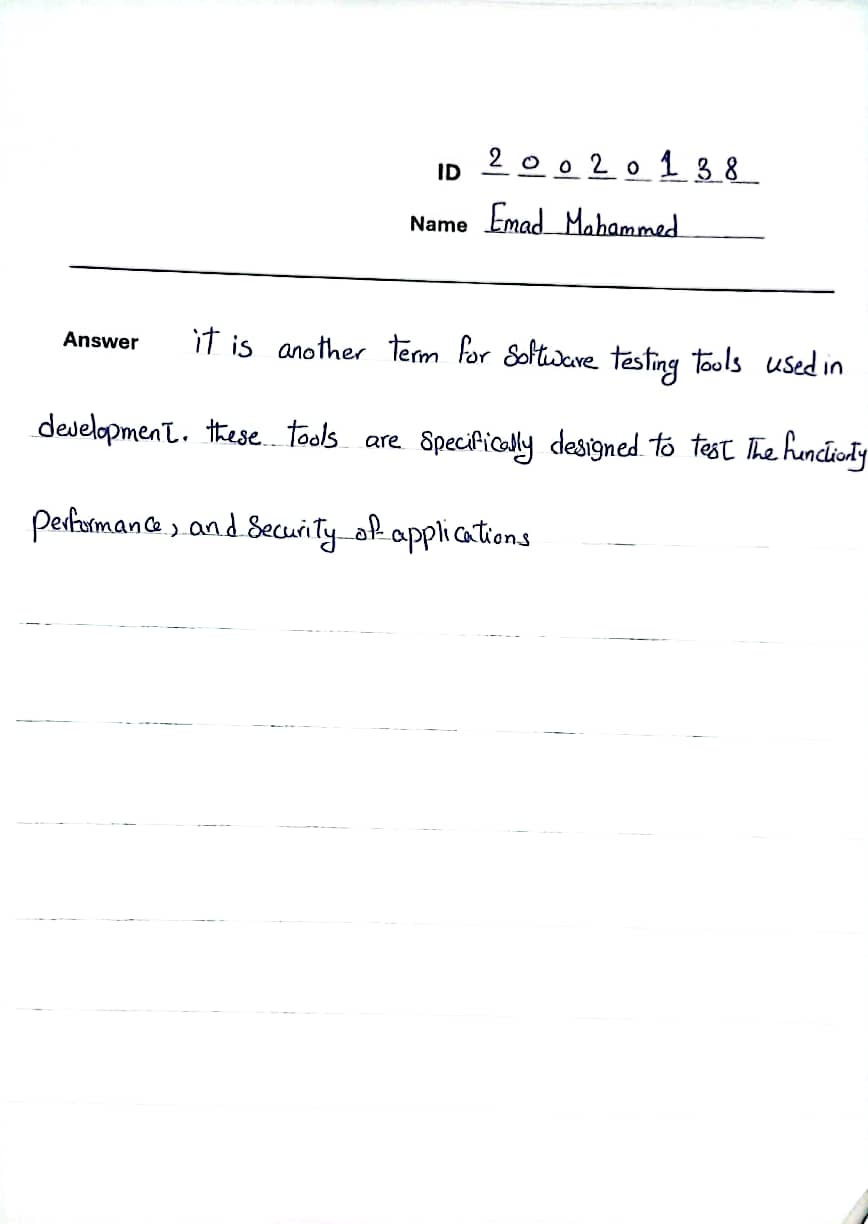 ID 20020138
Name Emad Mohammed
Answer it is another term for Software testing tools used in
development. these tools are specifically designed to test The functionty
Performance, and Security of applications